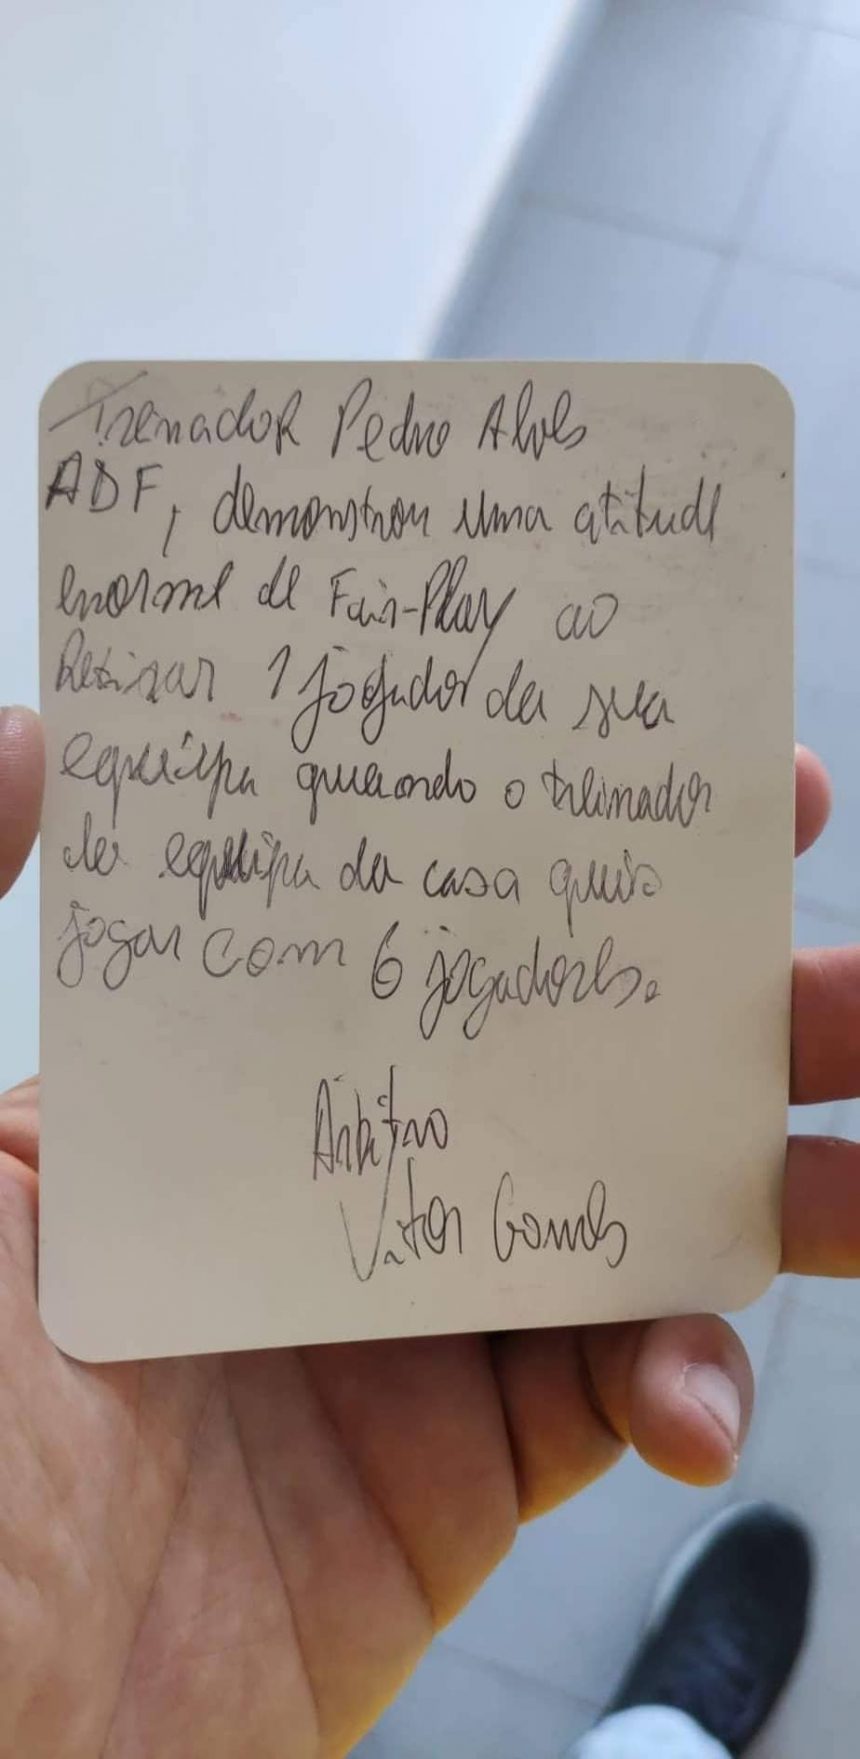 Trenador Pedro Alves
ADF, demonstrou uma atitude
enorme de Fair-Play ao
Retirar 1 jogador da sua
equipa quando o treinador
da equipa da casa quis
jogar com 6 jogadores.
Árbitro
Vitor Gomes